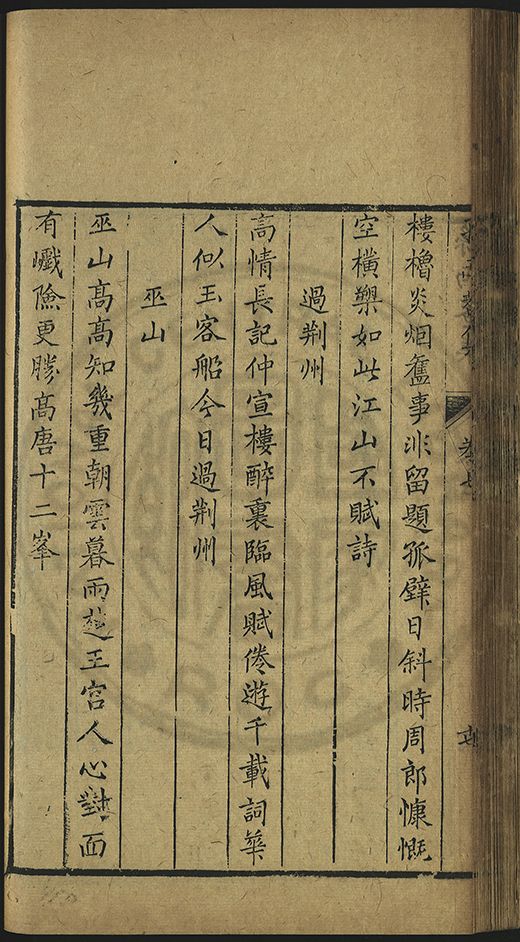 樓櫓炎烟舊事非留題孤壁日斜時周郎慷慨
空橫槊如此江山不賦詩
過荆州
高情長記仲宣樓醉裏臨風賦倦遊千載詞華
人似玉客船今日過荆州
巫山
巫山髙高知幾重朝雲暮雨楚王宫人心對面
有巇險更勝髙唐十二峯